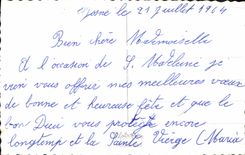 le 21 Juillet 1964
Bien chère Mademoiselle
A l'occasion de S. Madeleine je
vien vous offrir mes meilleures vœux
de bonne et heureuse fête et que le
bon Dieu vous protège encore
longtemp et la Sainte Vierge (Maria